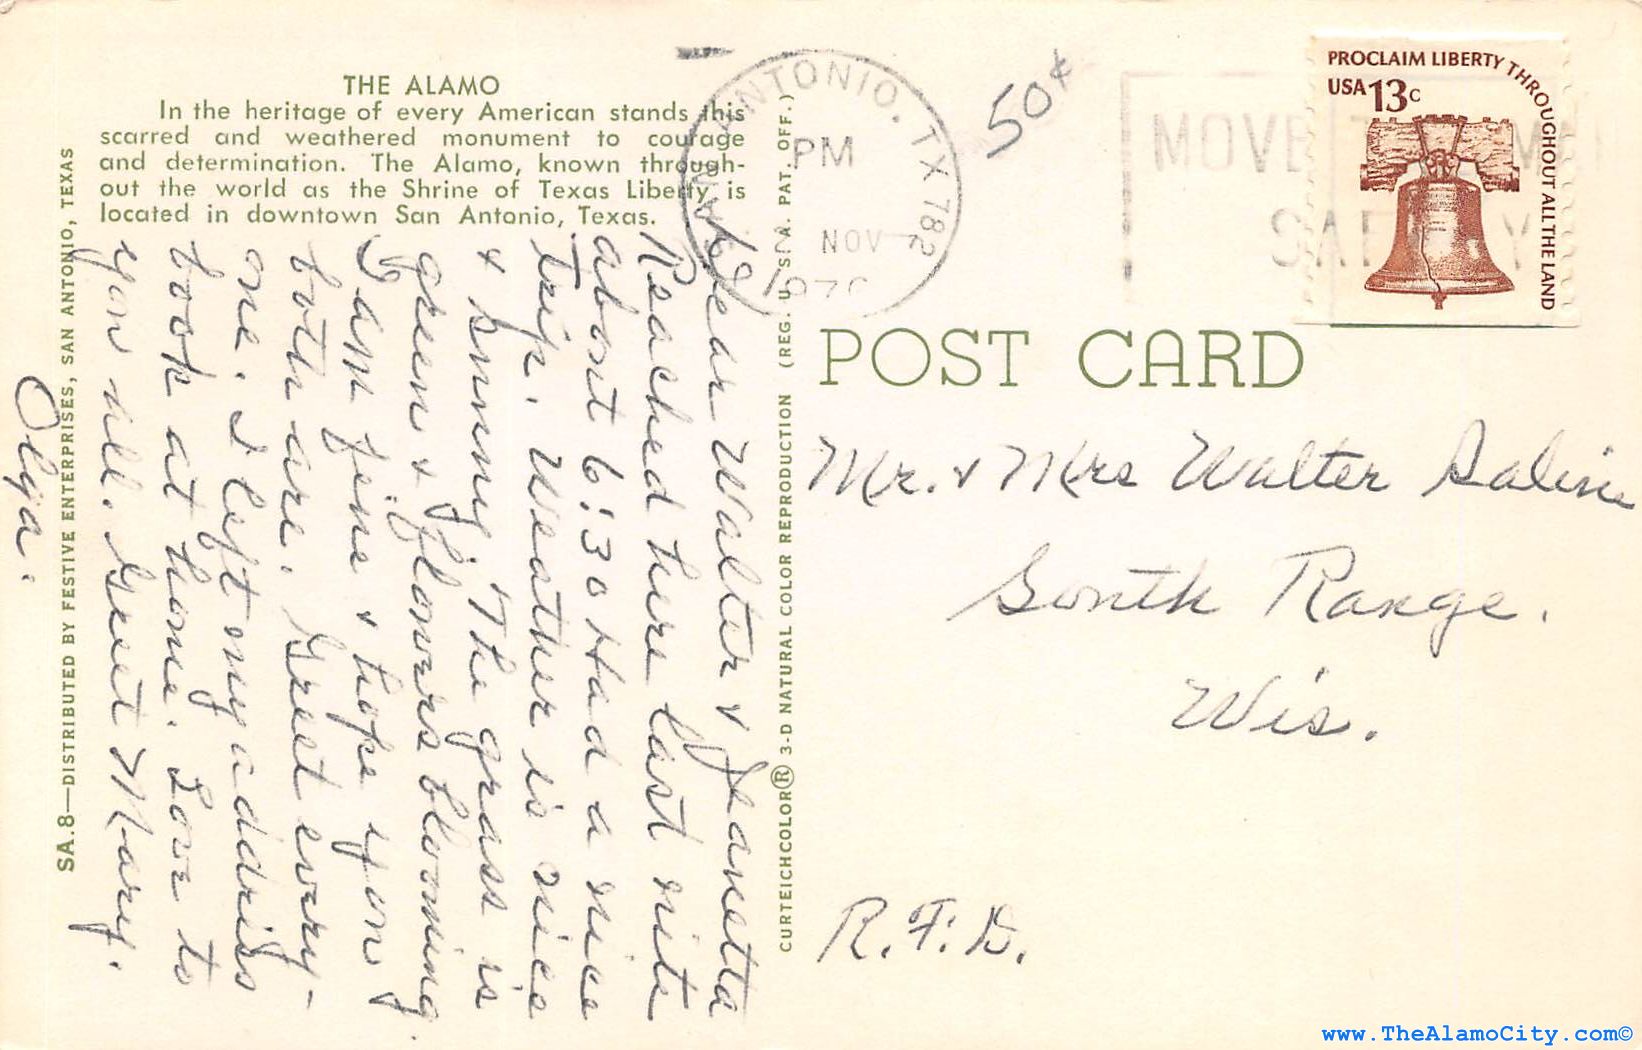 THE ALAMO
In the heritage of every American stands this
scarred and weathered monument to courage
and determination. The Alamo, known through-
out the world as the Shrine of Texas Liberty, is
located in downtown San Antonio, Texas.
SA.8—DISTRIBUTED BY FESTIVE ENTERPRISES, SAN ANTONIO, TEXAS
Dear Walter & Jeanetta
Reached here last nite
about 6:30 Had a nice
trip. Weather is nice
& sunny. The grass is
green & flowers blooming
I am fine & hope you
both are. Greet every-
one. I left my address
book at home. Love to
you all. Greet Mary.
Olga.
CURTEICHCOLOR® 3-D NATURAL COLOR REPRODUCTION (REG. U.S.A. PAT. OFF.)
SAN ANTONIO, TX 782
PM
NOV
197
50¢
MOVE
SAFELY
PROCLAIM LIBERTY THROUGHOUT ALL THE LAND
USA 13c
POST CARD
Mr. & Mrs Walter Saline
South Range.
Wis.
R.F.D.
www.TheAlamoCity.com©